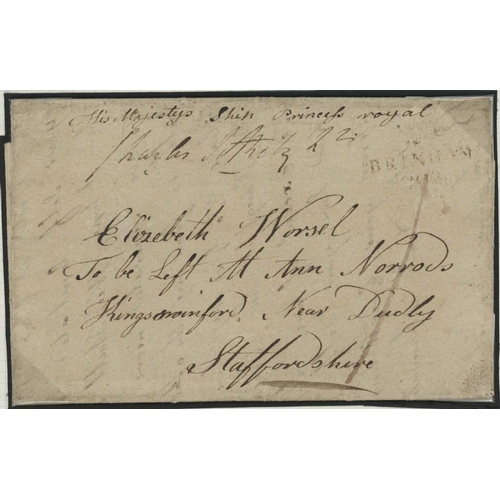 His Majestys Ship Princess royal
Charles
BRIXHAM
Elizebeth Worsel
To be Left At Ann Norrods
Kingswinford Near Dudly
Staffordshire